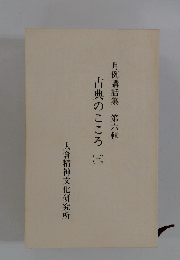 月例講話集 第六輯
古典のこころ (二)
大倉精神文化研究所